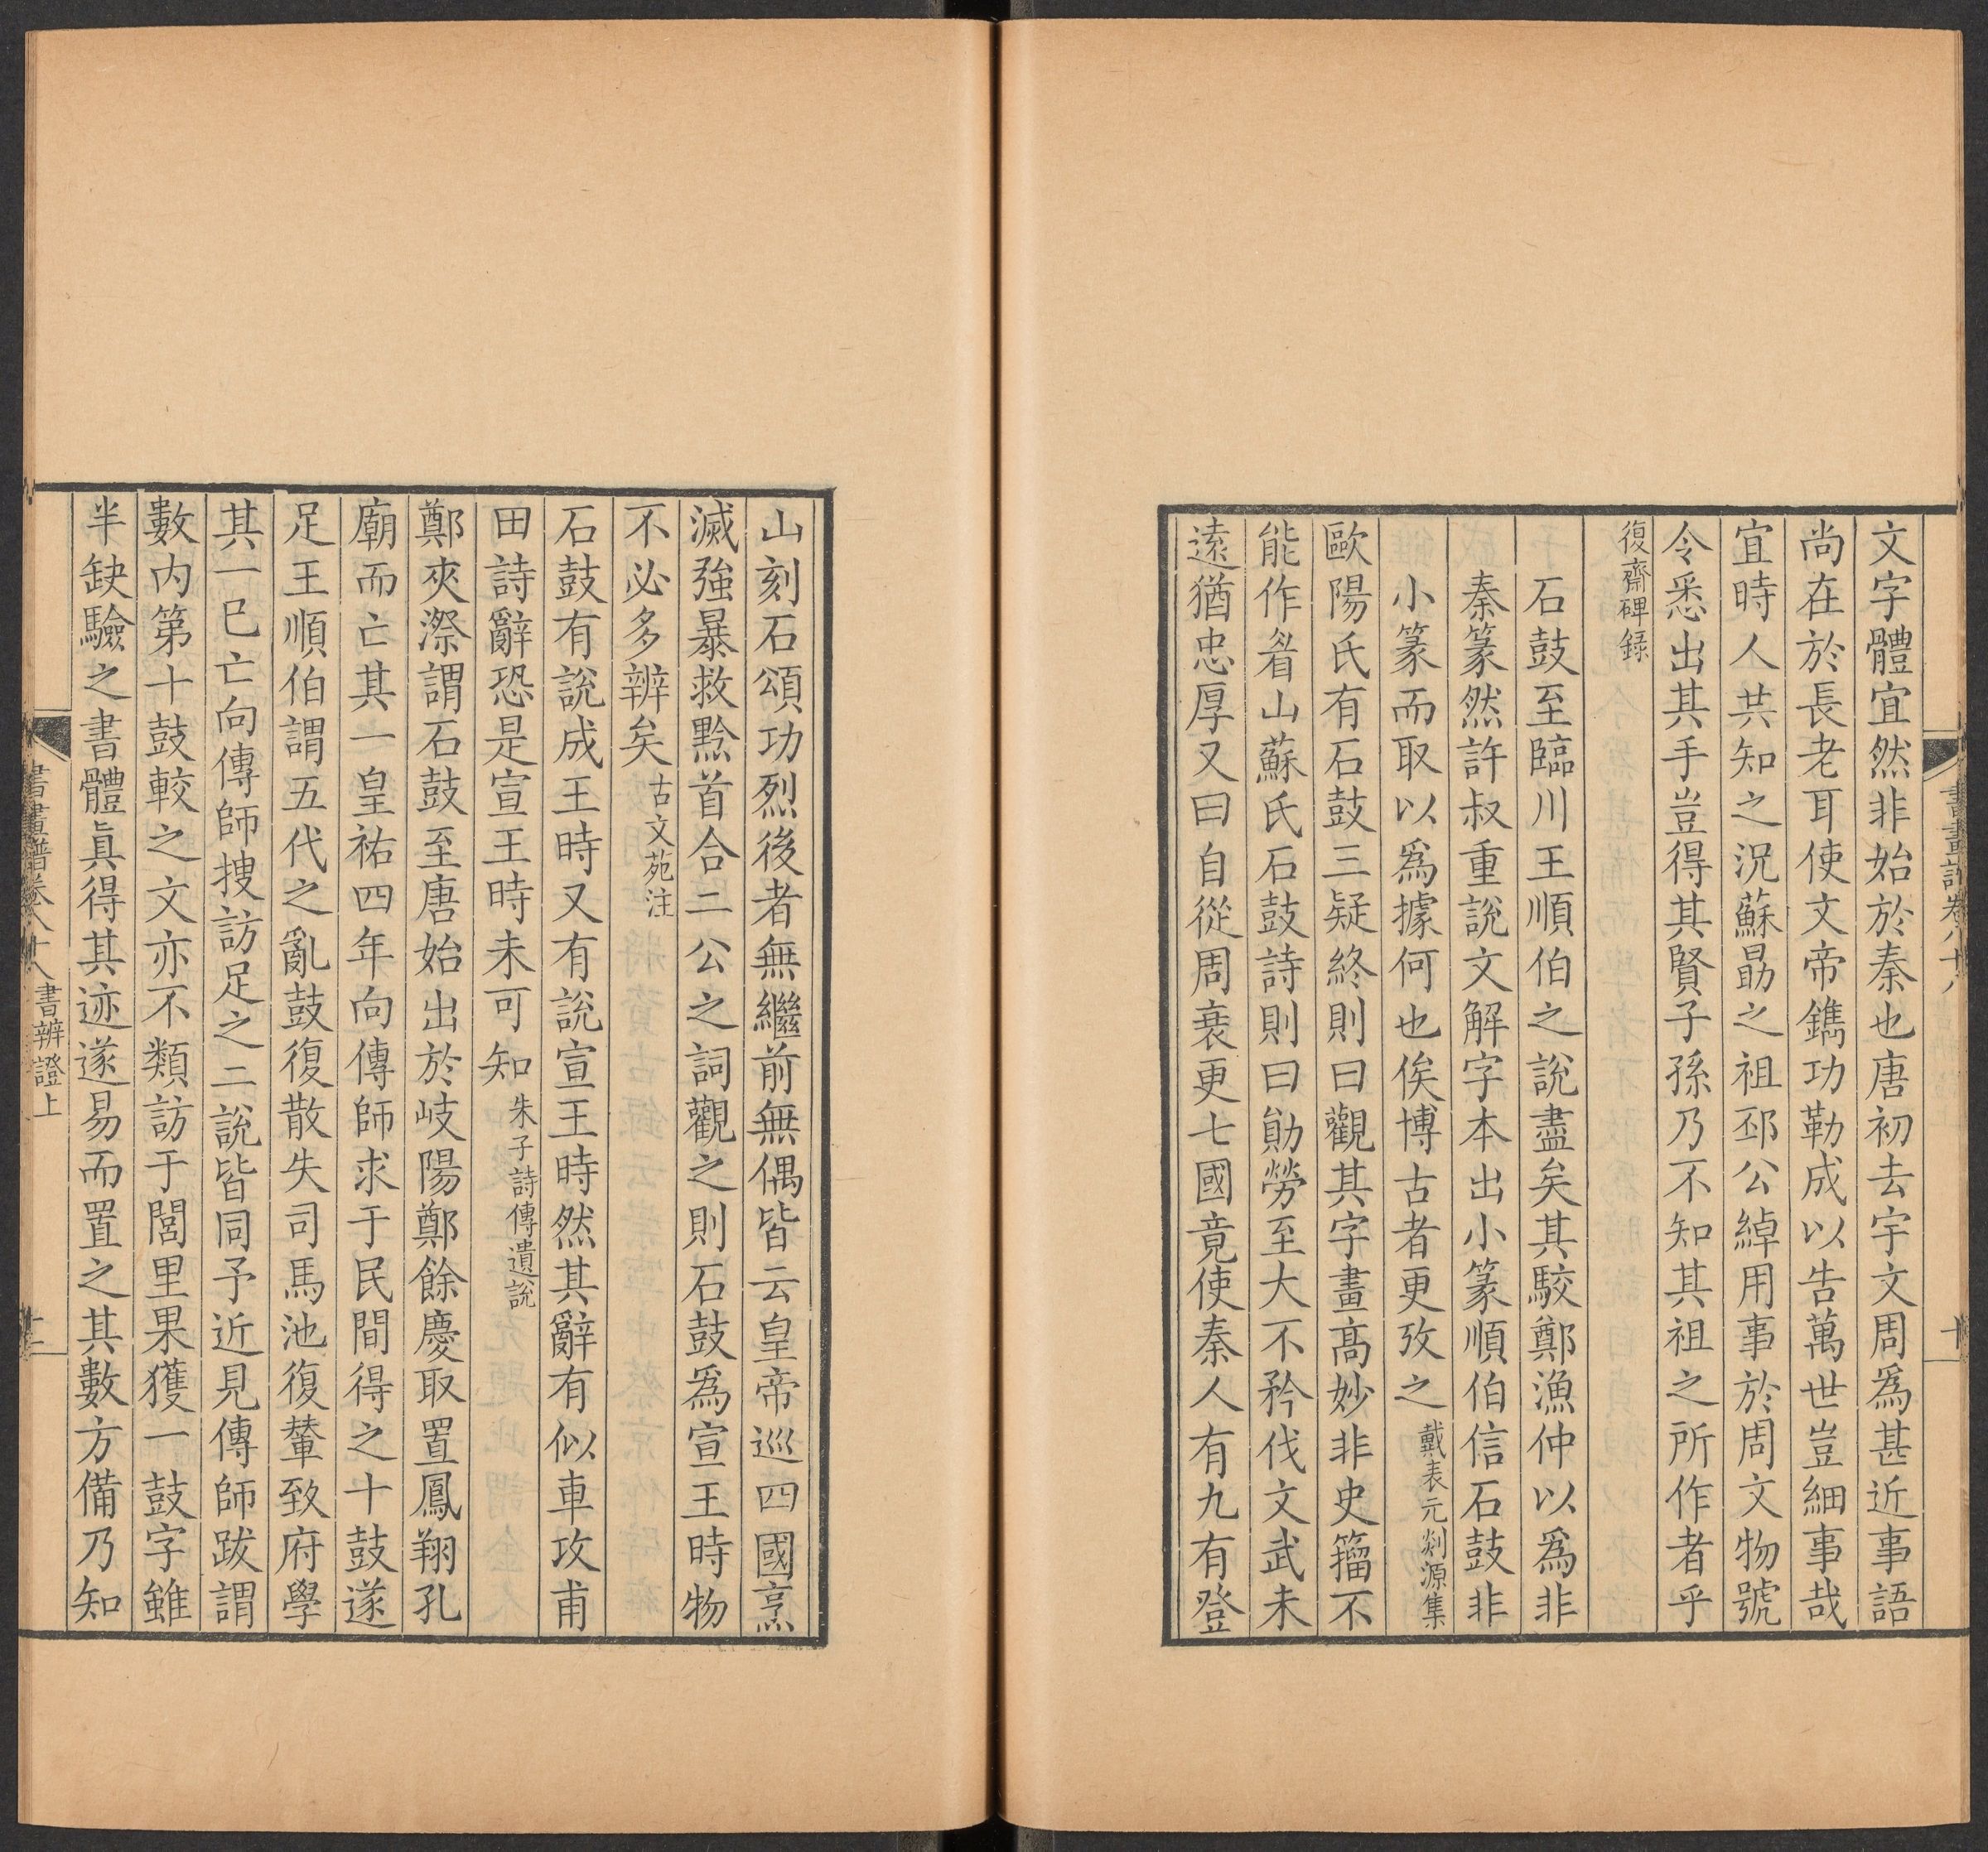 文字體宜然非始於秦也唐初去宇文周為甚近事語
尚在於長老耳使文帝鐫功勒成以告萬世豈細事哉
宜時人共知之況蘇勗之祖邳公綽用事於周文物號
令悉出其手豈得其賢子孫乃不知其祖之所作者乎
復齋碑録
石鼓至臨川王順伯之說盡矣其駮鄭漁仲以為非
秦篆然許叔重說文解字本出小篆順伯信石鼓非
小篆而取以為據何也俟博古者更攷之戴表元剡源集
歐陽氏有石鼓三疑終則曰觀其字畫高妙非史籀不
能作眉山蘇氏石鼓詩則曰勛勞至大不矜伐文武未
遠猶忠厚又曰自從周衰更七國竟使秦人有九有登
書畫譜卷八十八
十
山刻石頌功烈後者無繼前無偶皆云皇帝巡四國烹
滅強暴救黔首合二公之詞觀之則石鼓為宣王時物
不必多辨矣古文苑注
石鼓有說成王時又有說宣王時然其辭有似車攻甫
田詩辭恐是宣王時未可知朱子詩傳遺說
鄭夾漈謂石鼓至唐始出於岐陽鄭餘慶取置鳳翔孔
廟而亡其一皇祐四年向傳師求于民間得之十鼓遂
足王順伯謂五代之亂鼓復散失司馬池復輦致府學
其一已亡向傳師搜訪足之二說皆同予近見傳師跋謂
數內第十鼓較之文亦不類訪于閭里果獲一鼓字雖
半缺驗之書體真得其迹遂易而置之其數方備乃知
書畫譜卷八十八 書辨證上
十一